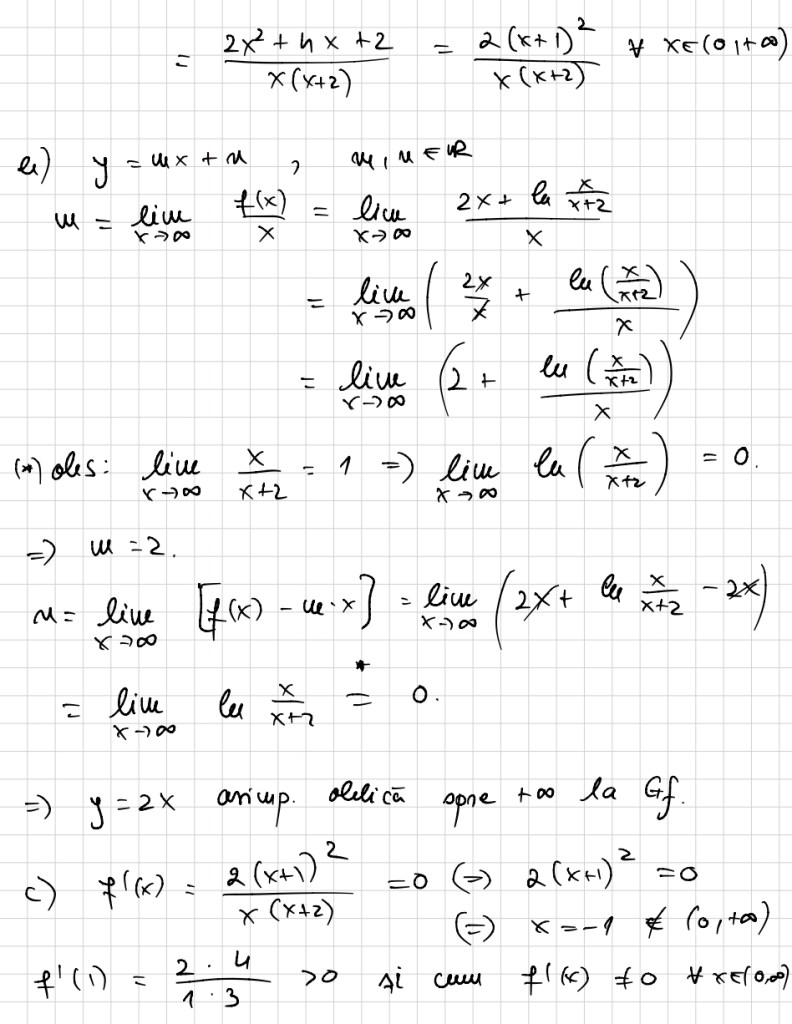 = \frac{2x² + 4x + 2}{x(x+2)} = \frac{2(x+1)²}{x(x+2)} ∀ x∈(0,+∞)
b) y = mx + n , m, n ∈ ℝ
m = lim_{x→∞} \frac{f(x)}{x} = lim_{x→∞} \frac{2x + ln \frac{x}{x+2}}{x}
= lim_{x→∞} ( \frac{2x}{x} + \frac{ln (\frac{x}{x+2})}{x} )
= lim_{x→∞} ( 2 + \frac{ln (\frac{x}{x+2})}{x} )
(*) obs: lim_{x→∞} \frac{x}{x+2} = 1 => lim_{x→∞} ln ( \frac{x}{x+2} ) = 0.
=> m = 2.
n = lim_{x→∞} [f(x) - m·x] = lim_{x→∞} ( 2x + ln \frac{x}{x+2} - 2x )
= lim_{x→∞} ln \frac{x}{x+2} \overset{*}{=} 0.
=> y = 2x asimp. oblică spre +∞ la Gf.
c) f'(x) = \frac{2(x+1)²}{x(x+2)} = 0 (=) 2(x+1)² = 0
(=) x = -1 ∉ (0,+∞)
f'(1) = \frac{2·4}{1·3} > 0 și cum f'(x) ≠ 0 ∀ x∈(0,∞)